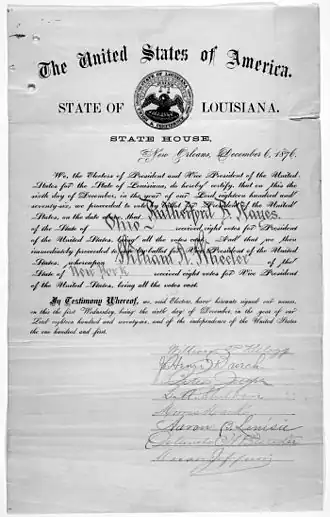 The United States of America.
STATE OF LOUISIANA.
STATE HOUSE,
New Orleans, December 6, 1876.
We, the Electors of President and Vice President of the United
States for the State of Louisiana, do hereby certify, that on this the
sixth day of December, in the year of our Lord eighteen hundred and
seventy-six, we proceeded to vote by ballot for President of the United
States, on the date above; that Rutherford B. Hayes,
of the State of Ohio, received eight votes for President
of the United States, being all the votes cast. And that we then
immediately proceeded to vote by ballot for Vice President of the
United States, whereupon William A. Wheeler, of the
State of New York received eight votes for Vice President
of the United States, being all the votes cast.
In Testimony Whereof, we, said Electors, have hereunto signed our names,
on this the first Wednesday, being the sixth day of December, in the year of our
Lord eighteen hundred and seventy-six, and of the independence of the United States
the one hundred and first.
William P. Kellogg
Peter Joseph
Morris Marks
Aaron B. Levisee
Orlando H. Brewster
Oscar Joffrion